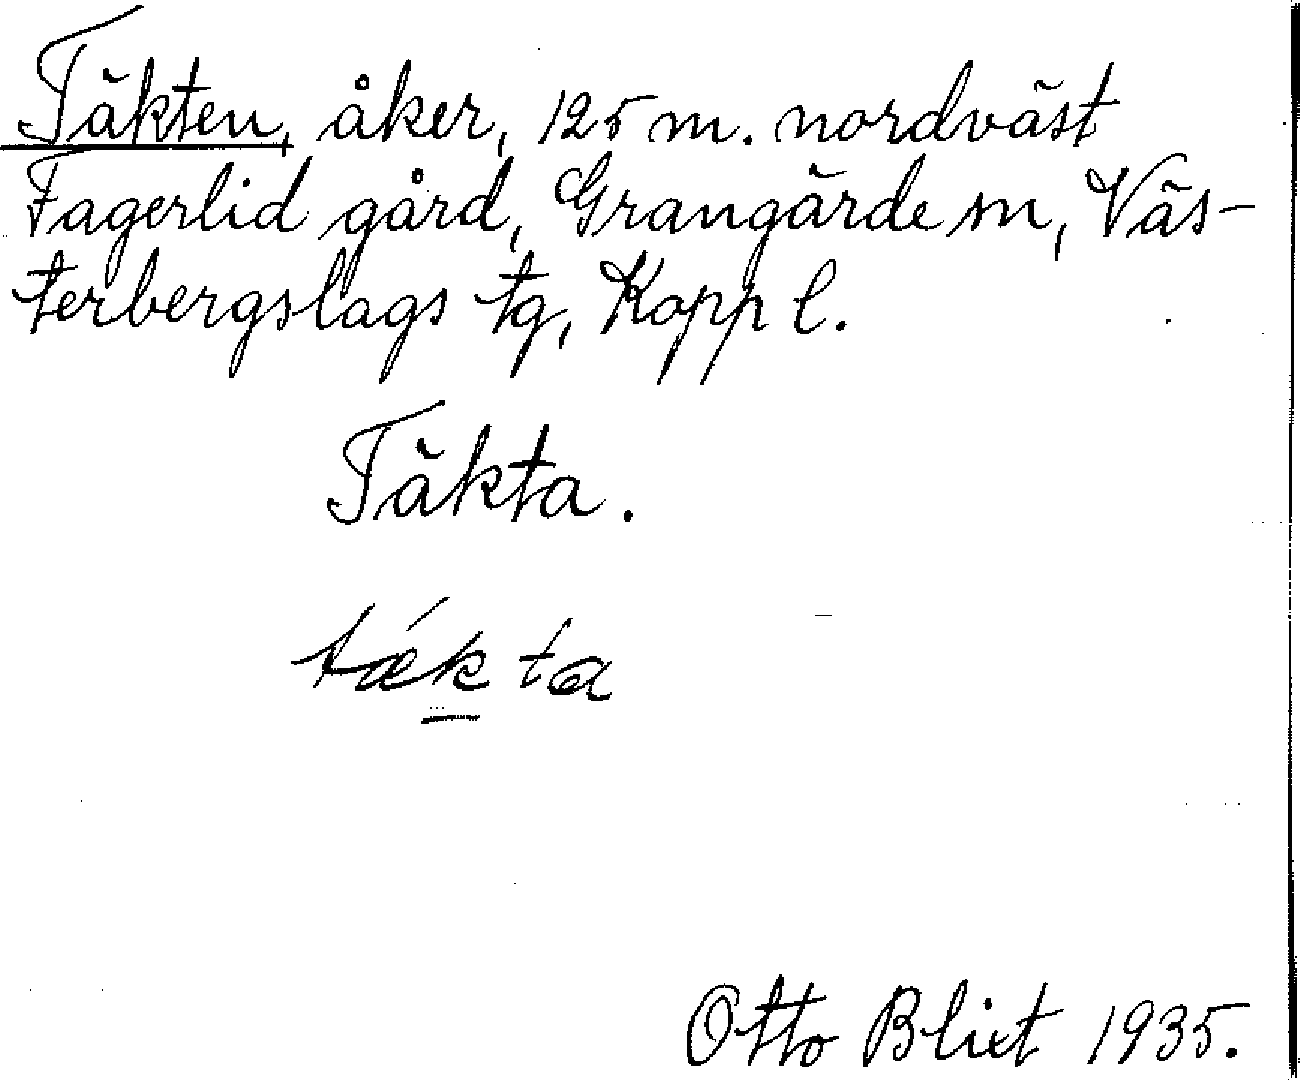 Täkten, åker, 125 m. nordväst
Fagerlid gård, Grangärde sn, Väs-
terbergslags tg, Kopp l.
Täkta.
tǽkta
Otto Blixt 1935.